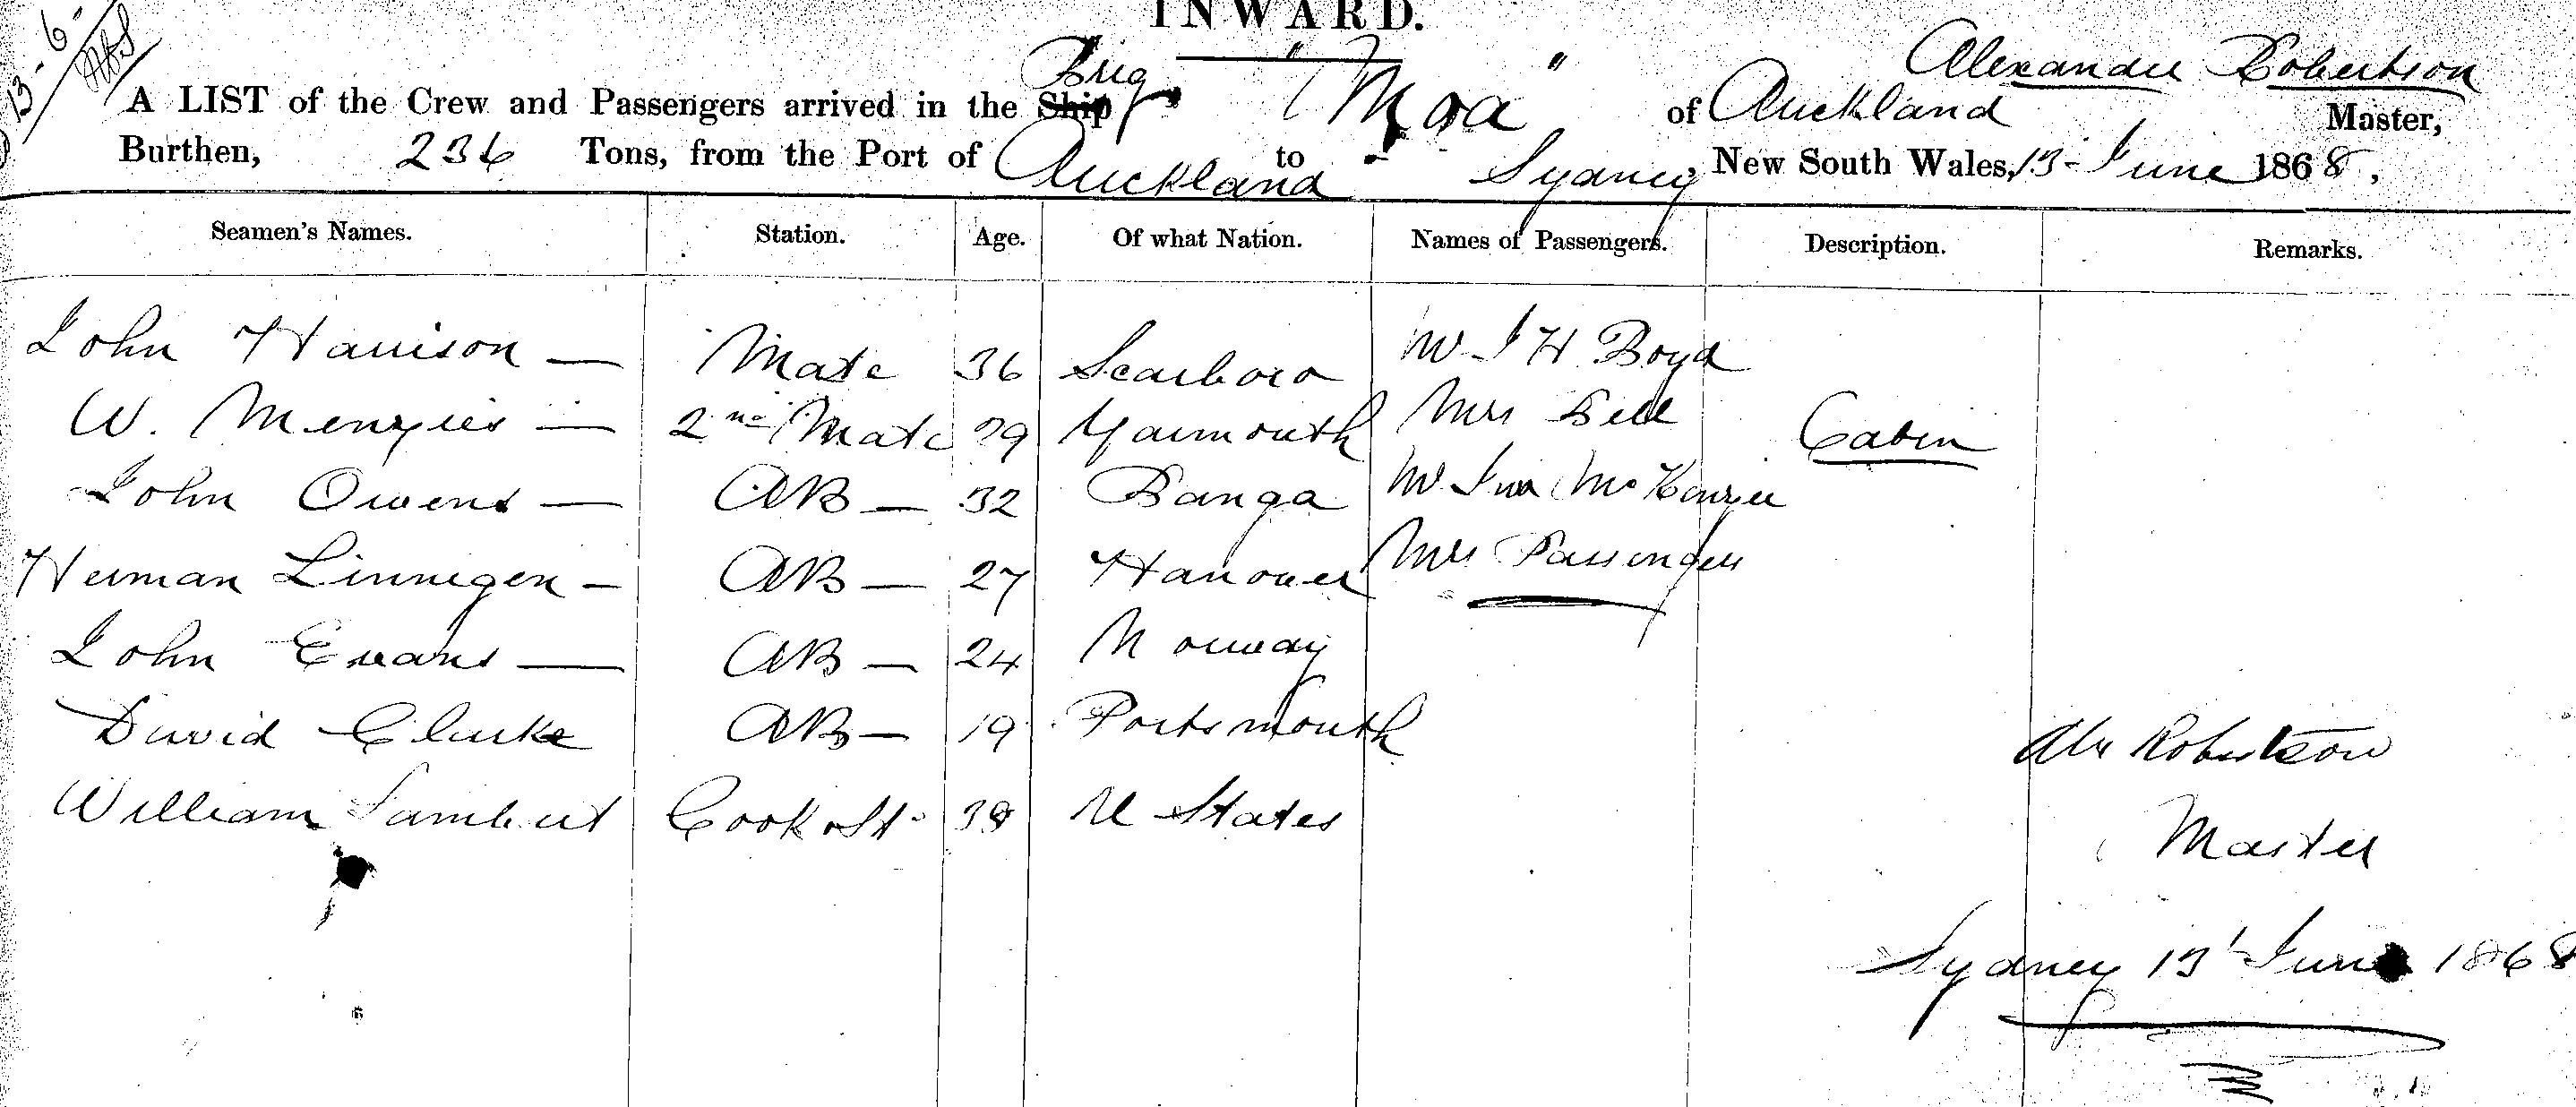 INWARD.
13-6-
A LIST of the Crew and Passengers arrived in the Ship Brig "Moa" of Auckland Alexander Robertson Master,
Burthen, 236 Tons, from the Port of Auckland to Sydney, New South Wales, 13 - June 1868,
Seamen's Names. Station. Age. Of what Nation. Names of Passengers. Description. Remarks.
John Harrison — Mate 36 Scarboro Mr J H Boyd
W. Menzies — 2nd Mate 29 Yarmouth Mrs Bell Cabin
John Owens — AB — 32 Banga Mr McKenzie
Herman Linnegen — AB — 27 Hanover Mrs Passengers
John Evans — AB — 24 Norway
David Clarke AB — 19 Portsmouth
William Lambert Cook & St 38 U States
Alex Robertson
Master
Sydney 13 June 1868